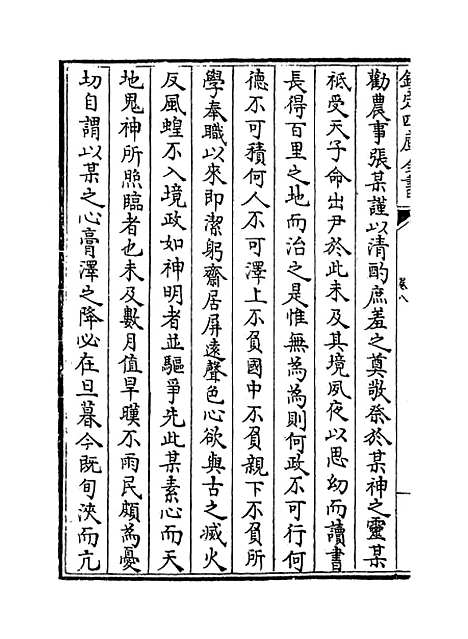 欽定四庫全書
卷八
勸農事張某謹以清酌庶羞之奠敬祭於某神之靈某
祗受天子命出尹於此未及其境夙夜以思幼而讀書
長得百里之地而治之是惟無為為則何政不可行何
德不可積何人不可澤上不負國中不負親下不負所
學奉職以來即潔躬齋居屏遠聲色心欲與古之滅火
反風蝗不入境政如神明者並驅爭先此某素心而天
地鬼神所照臨者也未及數月值旱暵不雨民頗為憂
切自謂以某之心膏澤之降必在旦暮今既旬浹而亢